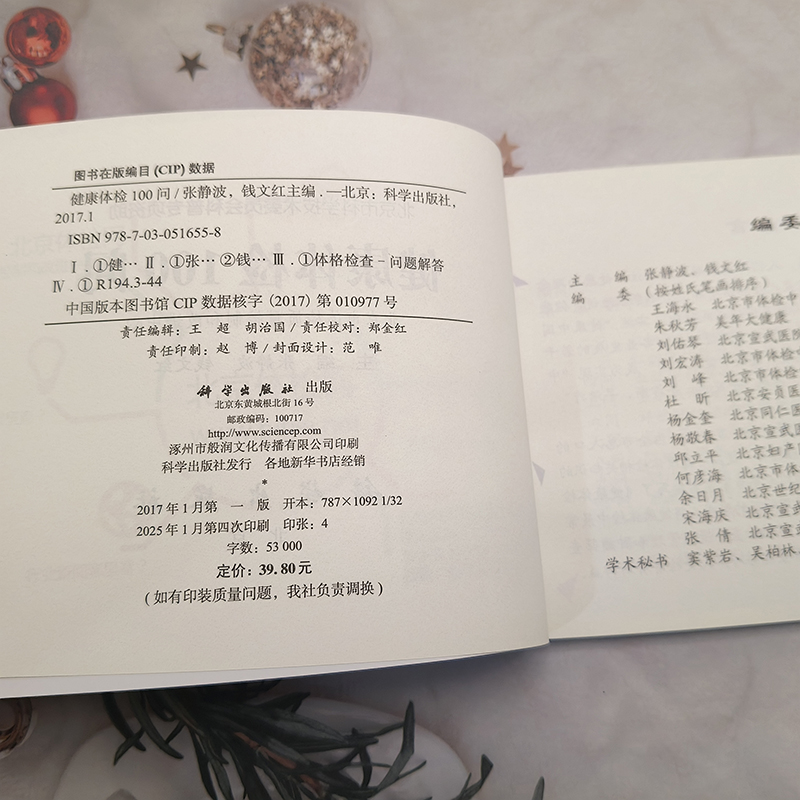 图书在版编目(CIP)数据
健康体检100问/张静波，钱文红主编.—北京：科学出版社，
2017.1
ISBN 978-7-03-051655-8
Ⅰ.①健… Ⅱ.①张…②钱… Ⅲ.①体格检查-问题解答
Ⅳ.①R194.3-44
中国版本图书馆CIP数据核字（2017）第010977号
责任编辑：王 超 胡治国/责任校对：郑金红
责任印制：赵 博/封面设计：范 唯
科学出版社 出版
北京东黄城根北街16号
邮政编码：100717
http://www.sciencep.com
涿州市般润文化传播有限公司印刷
科学出版社发行 各地新华书店经销
*
2017年1月第 一 版 开本：787×1092 1/32
2025年1月第四次印刷 印张：4
字数：53 000
定价：39.80元
（如有印装质量问题，我社负责调换）
编委
主 编 张静波、钱文红
编 委 （按姓氏笔画排序）
王海永 北京市体检中
朱秋芳 美年大健康
刘佑琴 北京宣武医院
刘宏涛 北京市体检
刘 峰 北京市体检
杜 昕 北京安贞医
杨金奎 北京同仁医
杨敬春 北京宣武医
邱立平 北京妇产
何彦海 北京市体
余日月 北京世纪
宋海庆 北京宣武
张 倩 北京宣
学术秘书 窦紫岩、吴柏林、